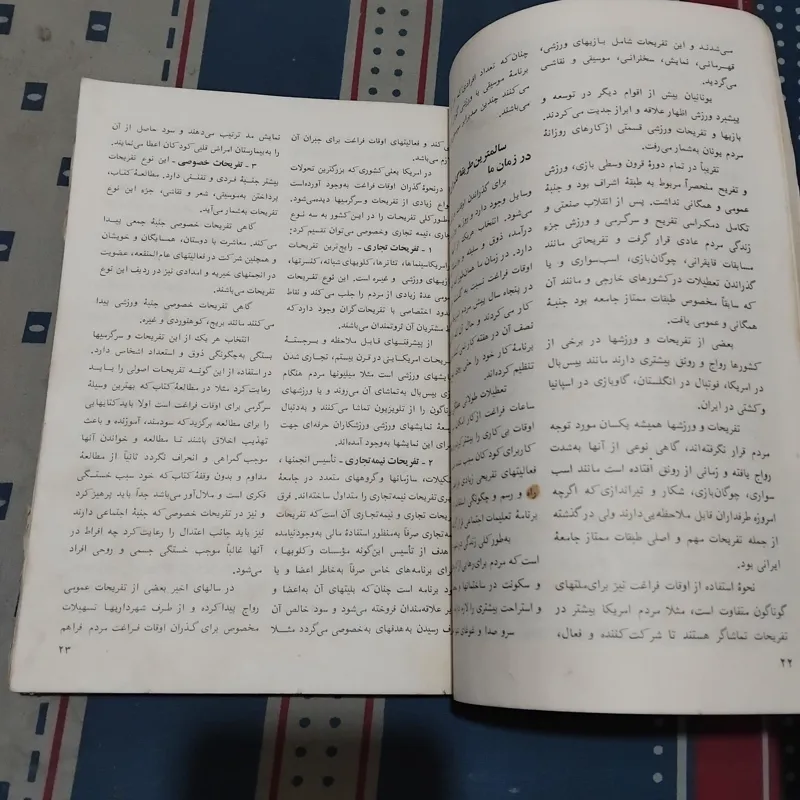 می‌شدند و این تفریحات شامل بازیهای ورزشی،
قهرمانی، نمایش، سخنرانی، موسیقی و نقاشی
می‌گردید.
یونانیان بیش از اقوام دیگر در توسعه و
پیشبرد ورزش اظهار علاقه و ابراز جدیت می‌کردند.
بازیها و تفریحات ورزشی قسمتی از کارهای روزانهٔ
مردم یونان به‌شمار می‌رفت.
تقریباً در تمام دورهٔ قرون وسطی بازی، ورزش
و تفریح منحصراً مربوط به طبقهٔ اشراف بود و جنبهٔ
عمومی و همگانی نداشت. پس از انقلاب صنعتی و
تکامل دمکراسی تفریح و سرگرمی و ورزش جزء
زندگی مردم عادی قرار گرفت و تفریحاتی مانند
مسابقات قایقرانی، چوگان‌بازی، اسب‌سواری و یا
گذراندن تعطیلات در کشورهای خارجی و مانند آن
که سابقاً مخصوص طبقات ممتاز جامعه بود جنبهٔ
همگانی و عمومی یافت.
بعضی از تفریحات و ورزشها در برخی از
کشورها رواج و رونق بیشتری دارند مانند بیس‌بال
در امریکا، فوتبال در انگلستان، گاوبازی در اسپانیا
و کشتی در ایران.
تفریحات و ورزشها همیشه یکسان مورد توجه
مردم قرار نگرفته‌اند، گاهی نوعی از آنها به‌شدت
رواج یافته و زمانی از رونق افتاده است مانند اسب
سواری، چوگان‌بازی، شکار و تیراندازی که اگرچه
امروزه طرفداران قابل ملاحظه‌یی دارند ولی در گذشته
از جمله تفریحات مهم و اصلی طبقات ممتاز جامعهٔ
ایرانی بود.
نحوهٔ استفاده از اوقات فراغت نیز برای ملتهای
گوناگون متفاوت است، مثلا مردم امریکا بیشتر در
تفریحات تماشاگر هستند تا شرکت‌کننده و فعال،
۲۲
چنان‌که تعداد افرادی که
برنامهٔ موسیقی یا ورزشی
می‌کنند چندین
می‌باشد.
سالمترین
در زمان ما
برای گذراندن
وسایل وجود دارد و
می‌شود. انتخاب هریک از
درآمد، ذوق و سلیقه و
دارد. در زمان ما
اوقات فراغت نسبت به
در پنجاه سال پیش مردم
کار می‌کردند و حال آنکه
نصف آن در هفته کار
برنامهٔ کار خود را
تنظیم کرده‌اند.
تعطیلات طولانی
ساعات فراغت از کار
اوقات بی‌کاری را بیشتر
کار برای کودکان سبب شده
فعالیتهای تفریحی زیادی
راه و رسم و چگونگی استفاده
برنامهٔ تعلیمات اجتماعی قرار
به‌طورکلی زندگی
است که مردم برای رهایی از
و سکونت در ساختمانها و
و استراحت بیشتری را لازم
سر و صدا و غوغای
کند و فعالیتهای اوقات فراغت برای جبران آن
می‌باشد.
در امریکا یعنی کشوری که بزرگترین تحولات
در نحوهٔ گذران اوقات فراغت به‌وجود آورده‌است
زیادی از تفریحات و سرگرمیها دیده‌می‌شود.
کلی تفریحات را در این کشور به سه نوع
تجاری، نیمه تجاری و خصوصی می‌توان تقسیم کرد:
۱ ـ تفریحات تجاری ـ رایج‌ترین تفریحات
امریکا سینماها، تئاترها، کلوبهای شبانه، کنسرتها،
بازیهای ورزشی و غیره است. این نوع تفریحات
عدهٔ زیادی از مردم را جلب می‌کند و نقاط
اختصاصی با تفریحات گران وجود دارد که
مشتریان آن ثروتمندان می‌باشند.
از پیشرفتهای قابل ملاحظه و برجستهٔ
تفریحات امریکایی در قرن بیستم، تجاری شدن
نمایشهای ورزشی است مثلا میلیونها مردم هنگام
بازی بیس‌بال به‌تماشای آن می‌روند و یا ورزشهای
گوناگون را از تلویزیون تماشا می‌کنند و به‌دنبال
نمایشهای ورزشی ورزشکاران حرفه‌ای جهت
این نمایشها به‌وجود آمده‌اند.
۲ ـ تفریحات نیمه‌تجاری ـ تأسیس انجمنها،
تشکیلات، سازمانها و گروههای متعدد در جامعهٔ
تفریحات نیمه‌تجاری را متداول ساخته‌اند. فرق
تفریحات تجاری و نیمه‌تجاری آن است که تفریحات
تجاری صرفاً به‌منظور استفادهٔ مالی به‌وجود نیامده
هدف از تأسیس این‌گونه مؤسسات و کلوبها،
برای برنامه‌های خاص صرفاً به‌خاطر اعضا و یا
برنامه است چنان‌که بلیتهای آن به‌اعضا و
علاقه‌مندان فروخته می‌شود و سود خالص آن
رسیدن به‌هدفهای به‌خصوصی می‌گردد مثلا
نمایش مد ترتیب می‌دهند و سود حاصل از آن
را به‌بیمارستان امراض قلبی کودکان اعطا می‌نمایند.
۳ ـ تفریحات خصوصی ـ این نوع تفریحات
بیشتر جنبهٔ فردی و تفننی دارد. مطالعهٔ کتاب،
پرداختن به‌موسیقی، شعر و نقاشی، جزء این نوع
تفریحات به‌شمار می‌آید.
گاهی تفریحات خصوصی جنبهٔ جمعی پیدا
می‌کند. معاشرت با دوستان، همسایگان و خویشان
و همچنین شرکت در فعالیتهای عام‌المنفعه، عضویت
در انجمنهای خیریه و امدادی نیز در ردیف این نوع
تفریحات می‌باشند.
گاهی تفریحات خصوصی جنبهٔ ورزشی پیدا
می‌کنند مانند بریج، کوهنوردی و غیره.
انتخاب هر یک از این تفریحات و سرگرمیها
بستگی به‌چگونگی ذوق و استعداد اشخاص دارد.
در استفاده از این گونه تفریحات اصولی را باید
رعایت کرد مثلا در مطالعهٔ کتاب که بهترین وسیلهٔ
سرگرمی برای اوقات فراغت است اولا باید کتابهایی
را برای مطالعه برگزید که سودمند، آموزنده و باعث
تهذیب اخلاق باشند تا مطالعه و خواندن آنها
موجب گمراهی و انحراف نگردد ثانیاً از مطالعهٔ
مداوم و بدون وقفهٔ کتاب که خود سبب خستگی
فکری است و ملال‌آور می‌باشد جداً باید پرهیز کرد
و نیز در تفریحات خصوصی که جنبهٔ اجتماعی دارند
نیز باید جانب اعتدال را رعایت کرد چه افراط در
آنها غالباً موجب خستگی جسمی و روحی افراد
می‌شود.
در سالهای اخیر بعضی از تفریحات عمومی
رواج پیدا کرده و از طرف شهرداریها تسهیلات
مخصوص برای گذران اوقات فراغت مردم فراهم
۲۳